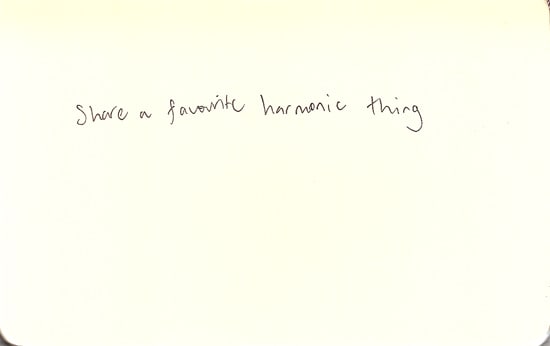 Share a favourite harmonic thing